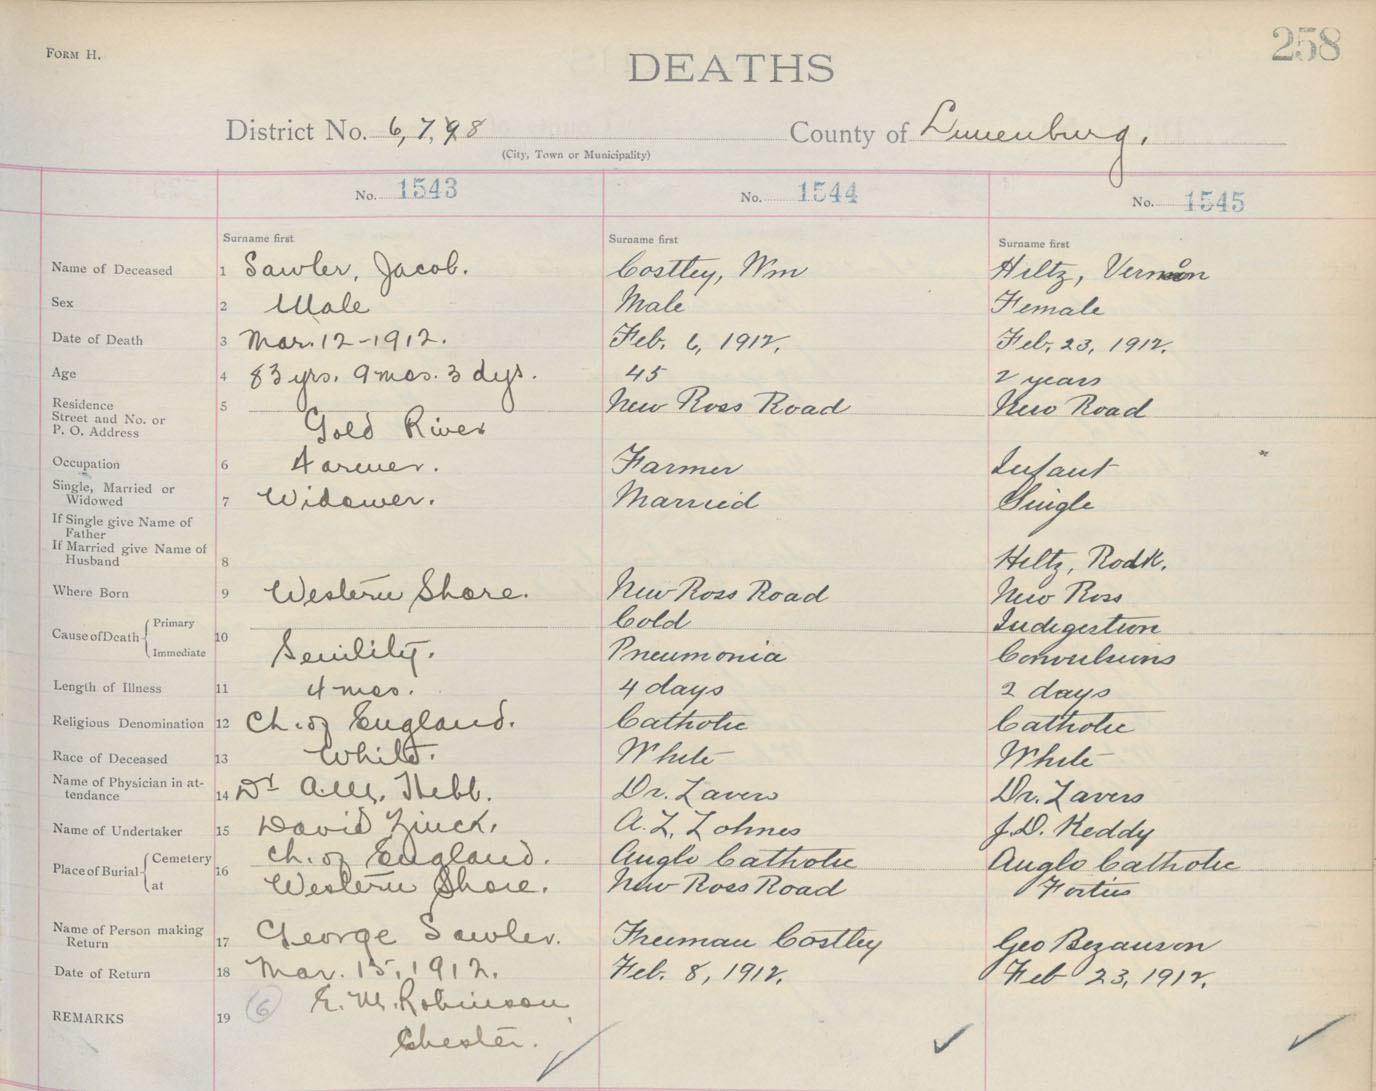 258
FORM H.
DEATHS
District No. 6, 7, 98
County of Lunenburg.
(City, Town or Municipality)
No. 1543
No. 1544
No. 1545
Surname first
Surname first
Surname first
Name of Deceased 1 Sawler, Jacob. Costley, Wm Hiltz, Vernon
Sex 2 Male Male Female
Date of Death 3 Mar. 12-1912. Feb. 6, 1912. Feb. 23, 1912.
Age 4 83 yrs. 9 mos. 3 dys. 45 2 years
Residence 5 New Ross Road New Road
Street and No. or
P. O. Address Gold River
Occupation 6 Farmer. Farmer Infant
Single, Married or
Widowed 7 Widower. Married Single
If Single give Name of
Father
If Married give Name of
Husband 8 Hiltz, Rodk.
Where Born 9 Western Shore. New Ross Road New Ross
Cause of Death Primary 10 Cold Indigestion
Immediate Senility. Pneumonia Convulsions
Length of Illness 11 4 mos. 4 days 2 days
Religious Denomination 12 Ch. of England. Catholic Catholic
Race of Deceased 13 White. White White
Name of Physician in at-
tendance 14 Dr A.M. Hebb. Dr. Lavers Dr. Lavers
Name of Undertaker 15 David Zinck. A. L. Lohnes J.D. Keddy
Place of Burial Cemetery 16 Ch. of England. Anglo Catholic Anglo Catholic
at Western Shore. New Ross Road Forties
Name of Person making
Return 17 George Sawler. Freeman Costley Geo Bezanson
Date of Return 18 Mar. 15, 1912. Feb. 8, 1912. Feb 23, 1912.
REMARKS 19 6 E. M. Robinson,
Chester.